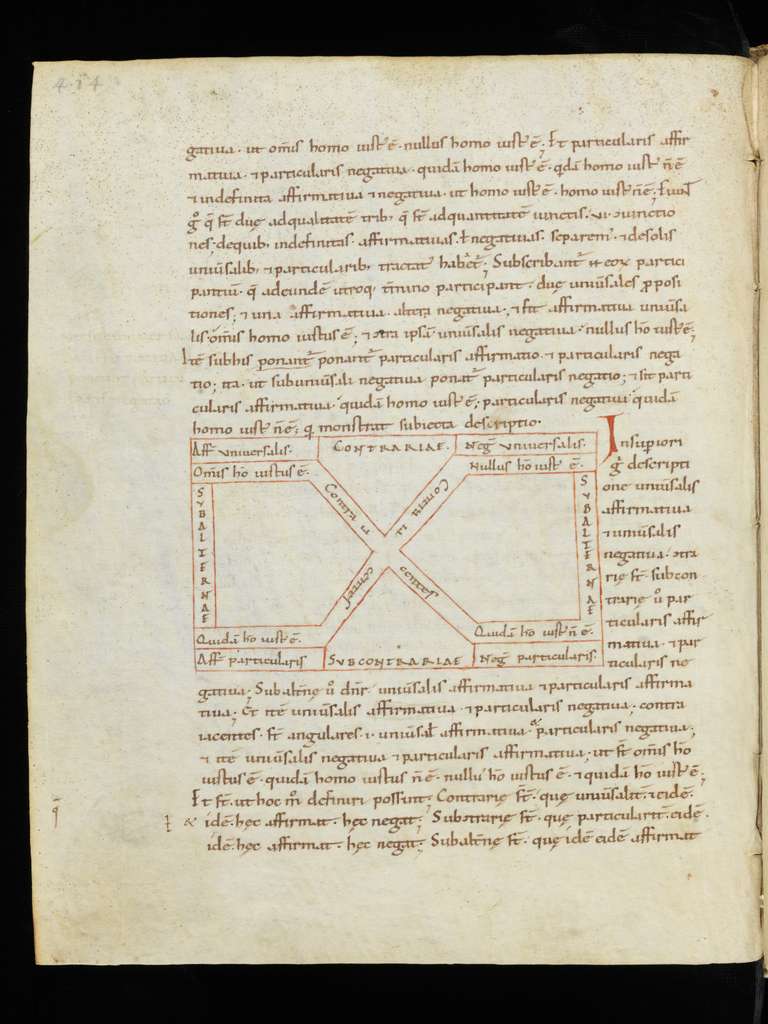 4·14
gatiua · ut om̄is homo iust᷒ ē · nullus homo iust᷒ ē ; Et particularis affir
matiua · & particularis negatiua · quidā homo iust᷒ ē · qdā homo iust᷒ n̄ ē
& indefinita affirmatiua & negatiua · ut homo iust᷒ ē · homo iust᷒ n̄ ē ;
q̄ s̄t duę ad qualitatē trib; q̄ s̄t ad quantitatē iunctis ·
nes · de quib; indefinitas · affirmatiuas · ł negatiuas · separem᷒ · & de solis
uniūsalib; & particularib; tractat᷒ habet᷒ ; Subscribant᷒ ex eox partici
pantiū · q̄ ad eundē utroq; t̄mino participant · duę uniūsales p̄posi
tiones ; & una affirmatiua · altera negatiua ; & sit affirmatiua uniūsa
lis · om̄is homo iustus ē ; & ɔtra ipsā uniūsalis negatiua · nullus hō iust᷒ ē ;
Itē sub his ponant᷒ ponant᷒ particularis affirmatio · & particularis nega
tio ; ita · ut sub uniūsali negatiua ponat᷒ particularis negatio ; & sit parti
cularis affirmatiua · quidā homo iust᷒ ē ; particularis negatiua quidā
homo iust᷒ n̄ ē ; q̄ monstrat subiecta descriptio ·
Aff̄ uniuersalis · CONTRARIAE · Neḡ uniuersalis ·
Om̄is hō iustus ē · Nullus hō iust᷒ ē ·
SVBALTERNAE
Contra
Contra
SVBALTERNAE
Quidā hō iust᷒ ē · Quidā hō iust᷒ n̄ ē ·
Aff̄ particularis SVBCONTRARIAE Neḡ particularis ·
In supiori
ḡ descripti
one uniūsalis
affirmatiua
& uniūsalis
negatiua · ɔtra
rię s̄t · subcon
trarię ū par
ticularis affir
matiua · & par
ticularis ne
gatiua ; Subalt̄nę ū dn̄r uniūsalis affirmatiua & particularis affirma
tiua ; Et itē uniūsalis affirmatiua · & particularis negatiua · contra
iacentes · s̄t angulares · i · uniūsal̄ affirmatiua · & particularis negatiua ;
& itē uniūsalis negatiua & particularis affirmatiua ; ut s̄t om̄is hō
iustus ē · quidā homo iustus n̄ ē · null᷒ hō iustus ē · & quidā hō iust᷒ ē ;
Et s̄t · ut hoc m̄ definiri possunt · Contrarię s̄t · quę uniūsalit̄ · & eidē ·
& idē · hęc affirmat · hęc negat ; Subɔtrarię s̄t · quę particularit̄ · eidē ·
idē · hęc affirmat · hęc negat ; Subalt̄nę s̄t · quę idē eidē affirmat